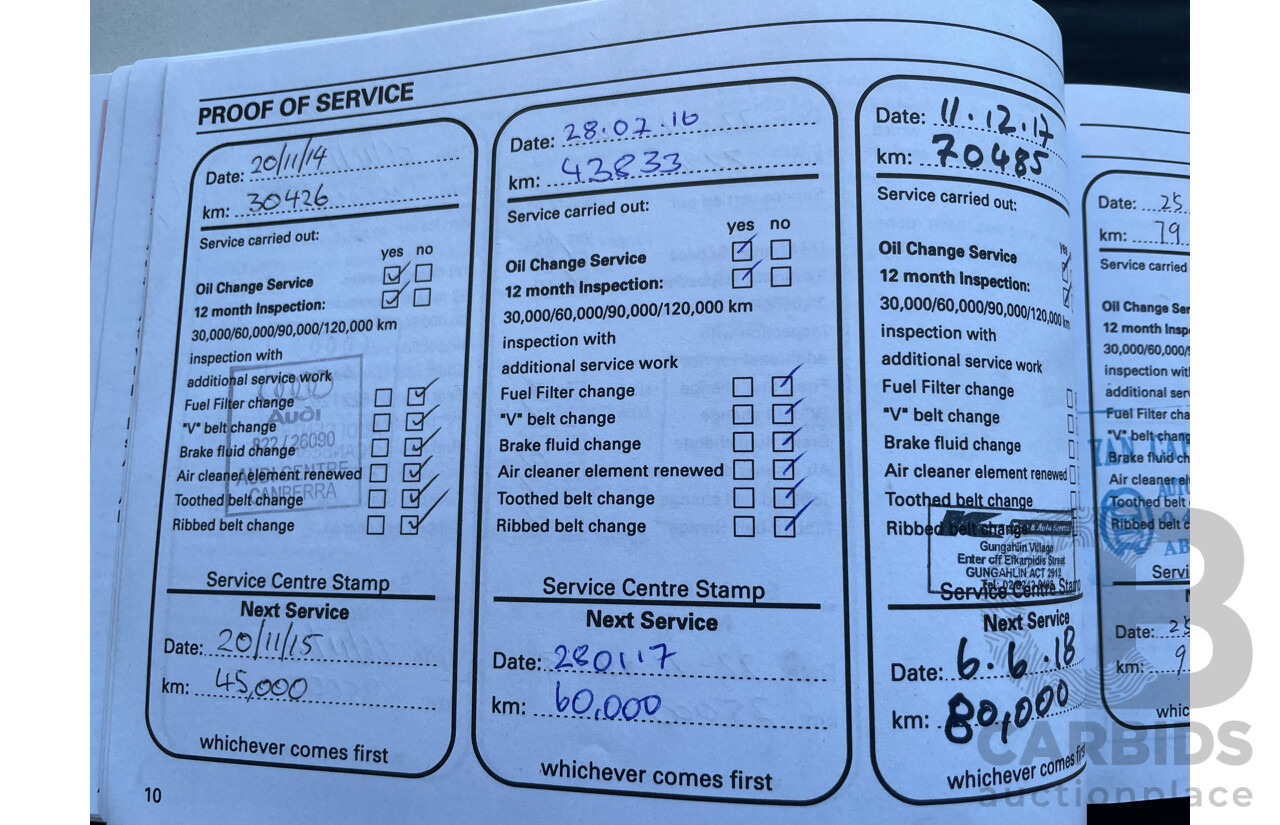 PROOF OF SERVICE
Date: 20/11/14
km: 30426
Service carried out:
yes no
Oil Change Service
12 month Inspection:
30,000/60,000/90,000/120,000 km
inspection with
additional service work
Fuel Filter change
"V" belt change
Brake fluid change
Air cleaner element renewed
Toothed belt change
Ribbed belt change
Audi
822 / 26090
AUDI CENTRE
CANBERRA
Service Centre Stamp
Next Service
Date: 20/11/15
km: 45,000
whichever comes first
10
Date: 28.07.16
km: 43833
Service carried out:
yes no
Oil Change Service
12 month Inspection:
30,000/60,000/90,000/120,000 km
inspection with
additional service work
Fuel Filter change
"V" belt change
Brake fluid change
Air cleaner element renewed
Toothed belt change
Ribbed belt change
Service Centre Stamp
Next Service
Date: 280117
km: 60,000
whichever comes first
Date: 11.12.17
km: 70485
Service carried out:
Oil Change Service
12 month Inspection:
30,000/60,000/90,000/120,000 km
inspection with
additional service work
Fuel Filter change
"V" belt change
Brake fluid change
Air cleaner element renewed
Toothed belt change
Ribbed belt change
Gungahlin Village
Enter off Efkarpidis Street
GUNGAHLIN ACT 2912
Service Centre Stamp
Next Service
Date: 6.6.18
km: 80,000
whichever comes first
Date: 25
km: 79
Service carried
Oil Change Ser
12 month Insp
30,000/60,000/
inspection wit
additional ser
Fuel Filter cha
"V" belt chang
Brake fluid ch
Air cleaner el
Toothed belt
Ribbed belt c
Servi
Date: 25
km: 9
whic
CARBIDS
auctionplace